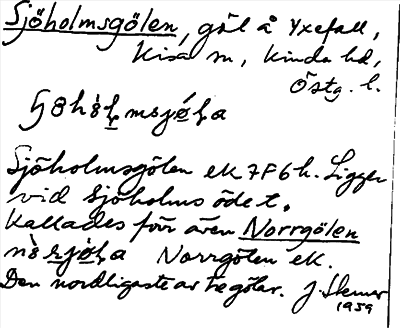 Sjöholmsgölen, göl å Yxefall,
Kisa sn, Kinda hd,
Östg. l.
Sjöholmsgölen ek 7F6h. Ligger
vid Sjöholms ödet.
Kallades förr även Norrgölen
Norrgölen ek.
Den nordligaste av tre gölar. J. Stener
1959